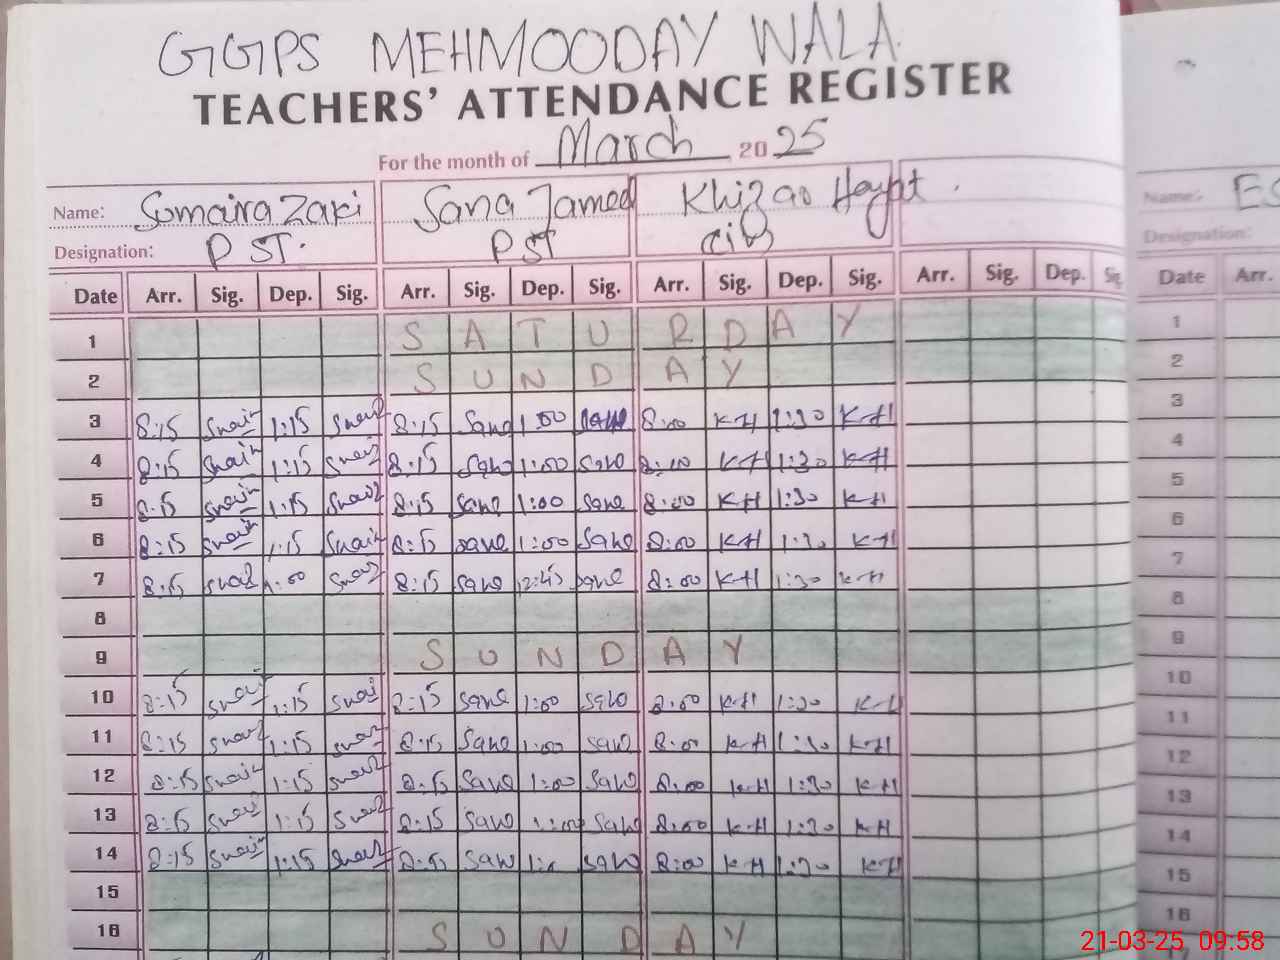 GGPS MEHMOODAY WALA
TEACHERS' ATTENDANCE REGISTER
For the month of March 2025
Name: Somaira Zaki Sana Jameel Khizao Hayat
Designation: PST. PST
Date Arr. Sig. Dep. Sig. Arr. Sig. Dep. Sig. Arr. Sig. Dep. Sig. Arr. Sig. Dep. Sig.
1 SATURDAY
2 SUNDAY
3 8:15 1:15 8:15 Sane 1:00 Sane 8:00 KH 1:30 KH
4 8:15 1:15 8:15 Sane 1:00 Sane 8:00 KH 1:30 KH
5 8:15 1:15 8:15 Sane 1:00 Sane 8:00 KH 1:30 KH
6 8:15 1:15 8:15 Sane 1:00 Sane 8:00 KH 1:30 KH
7 8:15 1:00 8:15 Sane 12:45 Sane 8:00 KH 1:30 KH
8
9 SUNDAY
10 8:15 1:15 8:15 Sane 1:00 Sane 8:00 KH 1:30 KH
11 8:15 1:15 8:15 Sane 1:00 Sane 8:00 KH 1:30 KH
12 8:15 1:15 8:15 Sane 1:00 Sane 8:00 KH 1:30 KH
13 8:15 1:15 8:15 Sane 1:00 Sane 8:00 KH 1:30 KH
14 8:15 1:15 8:15 Sane Sane 8:00 KH 1:30 KH
15
16 SUNDAY
Name: ES
Designation:
Date Arr.
1
2
3
4
5
6
7
8
9
10
11
12
13
14
15
16
21-03-25 09:58